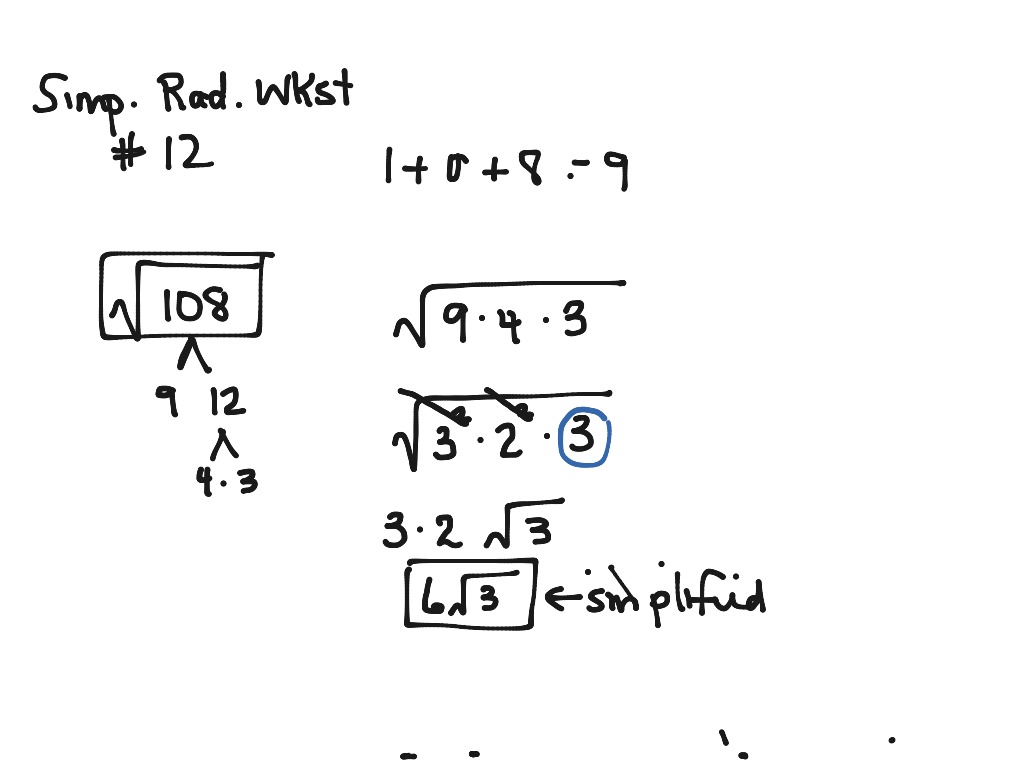 Simp. Rad. Wkst
# 12
1 + 0 + 8 = 9
√108
9 12
4 · 3
√9 · 4 · 3
√3² · 2² · 3
3 · 2 √3
6√3 ← simplified